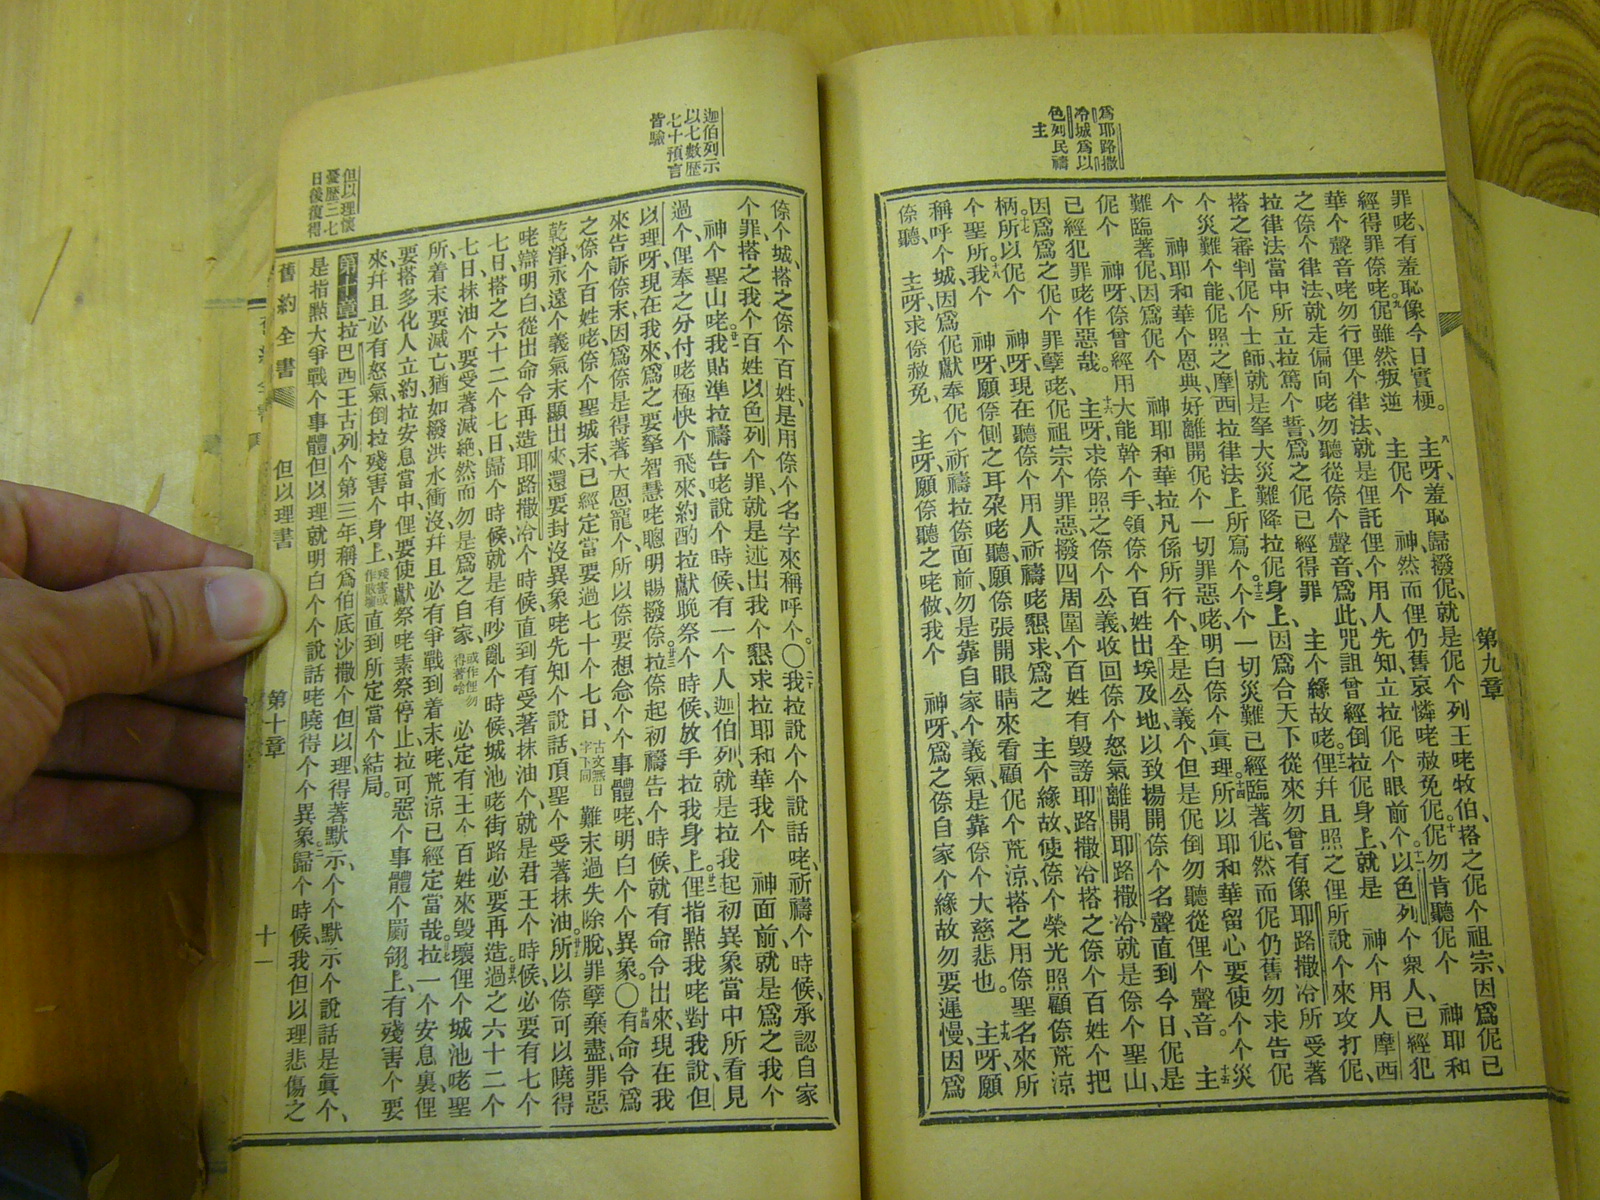 爲耶路撒
冷城爲以
色列民禱
主
第九章
罪咾、有羞恥像今日實梗。八主呀、羞恥歸撥伲、就是伲个列王咾牧伯、搭之伲个祖宗、因爲伲已
經得罪倷咾。九伲雖然叛逆 主伲个 神、然而俚仍舊哀憐咾赦免伲。十伲勿肯聽伲个 神耶和
華个聲音咾勿行俚个律法、就是俚託俚个用人先知、立拉伲个眼前个。十一以色列个衆人、已經犯
之倷个律法、就走偏向咾勿聽從倷个聲音、爲此、咒詛曾經倒拉伲身上、就是 神个用人摩西
拉律法當中所立拉篤个誓、爲之伲已經得罪 主个緣故咾。十二俚幷且照之俚所說个、來攻打伲
搭之審判伲个士師、就是拏大災難降拉伲身上、因爲合天下從來勿曾有像耶路撒冷所受著
个災難个能。十三伲照之摩西拉律法上所寫个、个个一切災難、已經臨著伲、然而伲仍舊勿求告伲
个 神耶和華个恩典、好離開伲个一切罪惡咾、明白倷个眞理。十四所以耶和華留心要使个个災
難臨著伲、因爲伲个 神耶和華拉凡係所行个、全是公義个、但是伲倒勿聽從俚个聲音。十五主
伲个 神呀、倷曾經用大能幹个手、領倷个百姓出埃及地、以致揚開倷个名聲直到今日、伲是
已經犯罪咾作惡哉。十六主呀、求倷照之倷个公義、收回倷个怒氣、離開耶路撒冷、就是倷个聖山、
因爲爲之伲个罪孽咾、伲祖宗个罪惡、撥四周圍个百姓有毀謗耶路撒冷搭之倷个百姓个把
柄。十七所以伲个 神呀、現在聽倷个用人祈禱咾懇求、爲之 主个緣故、使倷个榮光照顧倷荒涼
个聖所。十八我个 神呀、願倷側之耳朶咾聽、願倷張開眼睛來看顧伲个荒涼、搭之用倷聖名來所
稱呼个城、因爲伲獻奉伲个祈禱拉倷面前、勿是靠自家个義氣、是靠倷个大慈悲也。十九主呀、願
倷聽、主呀、求倷赦免、主呀、願倷聽之咾做、我个 神呀、爲之倷自家个緣故、勿要遲慢、因爲
迦伯列示
以七數歷
七十預言
皆驗
倷个城、搭之倷个百姓、是用倷个名字來稱呼个。〇二十我拉說个个說話咾、祈禱个時候、承認自家
个罪、搭之我个百姓以色列个罪、就是述出我个懇求拉耶和華我个 神面前、就是爲之我个
神个聖山咾。廿一我貼準拉禱告咾說个時候、有一个人迦伯列、就是拉我起初異象當中所看見
過个、俚奉之分付咾極快个飛來、約酌拉獻晚祭个時候、放手拉我身上。廿二俚指點我咾對我說、但
以理呀、現在我來、爲之要拏智慧咾聰明賜撥倷。廿三拉倷起初禱告个時候、就有命令出來、現在我
來告訴倷末、因爲倷是得著大恩寵个、所以倷要想念个个事體咾、明白个个異象。〇廿四有命令爲
之倷个百姓咾、倷个聖城末、已經定當、要過七十个七日、古文無日字下同難末過失除脫、罪孽棄盡、罪惡
乾淨、永遠个義氣末顯出來、還要封沒異象咾先知个說話、頂聖个受著抹油。廿五所以倷可以曉得
咾辯明白、從出命令再造耶路撒冷个時候、直到有受著抹油个、就是君王个時候、必要有七个
七日、搭之六十二个七日、歸个時候、就是有吵亂个時候、城池咾街路必要再造。廿六過之六十二个
七日、抹油个要受著滅絕、然而勿是爲之自家、或作俚勿得著啥必定有王个百姓、來毀壞俚个城池咾聖
所、着末要滅亡、猶如撥洪水衝沒、幷且必有爭戰到着末咾荒涼、已經定當哉。廿七拉一个安息裏、俚
要搭多化人立約、拉安息當中、俚要使獻祭咾素祭停止、拉可惡个事體个翩翎上、有殘害个要
來、幷且必有怒氣倒拉殘害个身上、殘害或作敗壞直到所定當个結局。
但以理懷
憂歷三七
日後復得
第十章拉巴西王古列个第三年、稱爲伯底沙撒个但以理、得著默示、个个默示个說話是眞个、
是指點大爭戰个事體、但以理就明白个个說話咾、曉得个个異象。二歸个時候、我但以理悲傷之
舊約全書 但以理書 第十章 十一